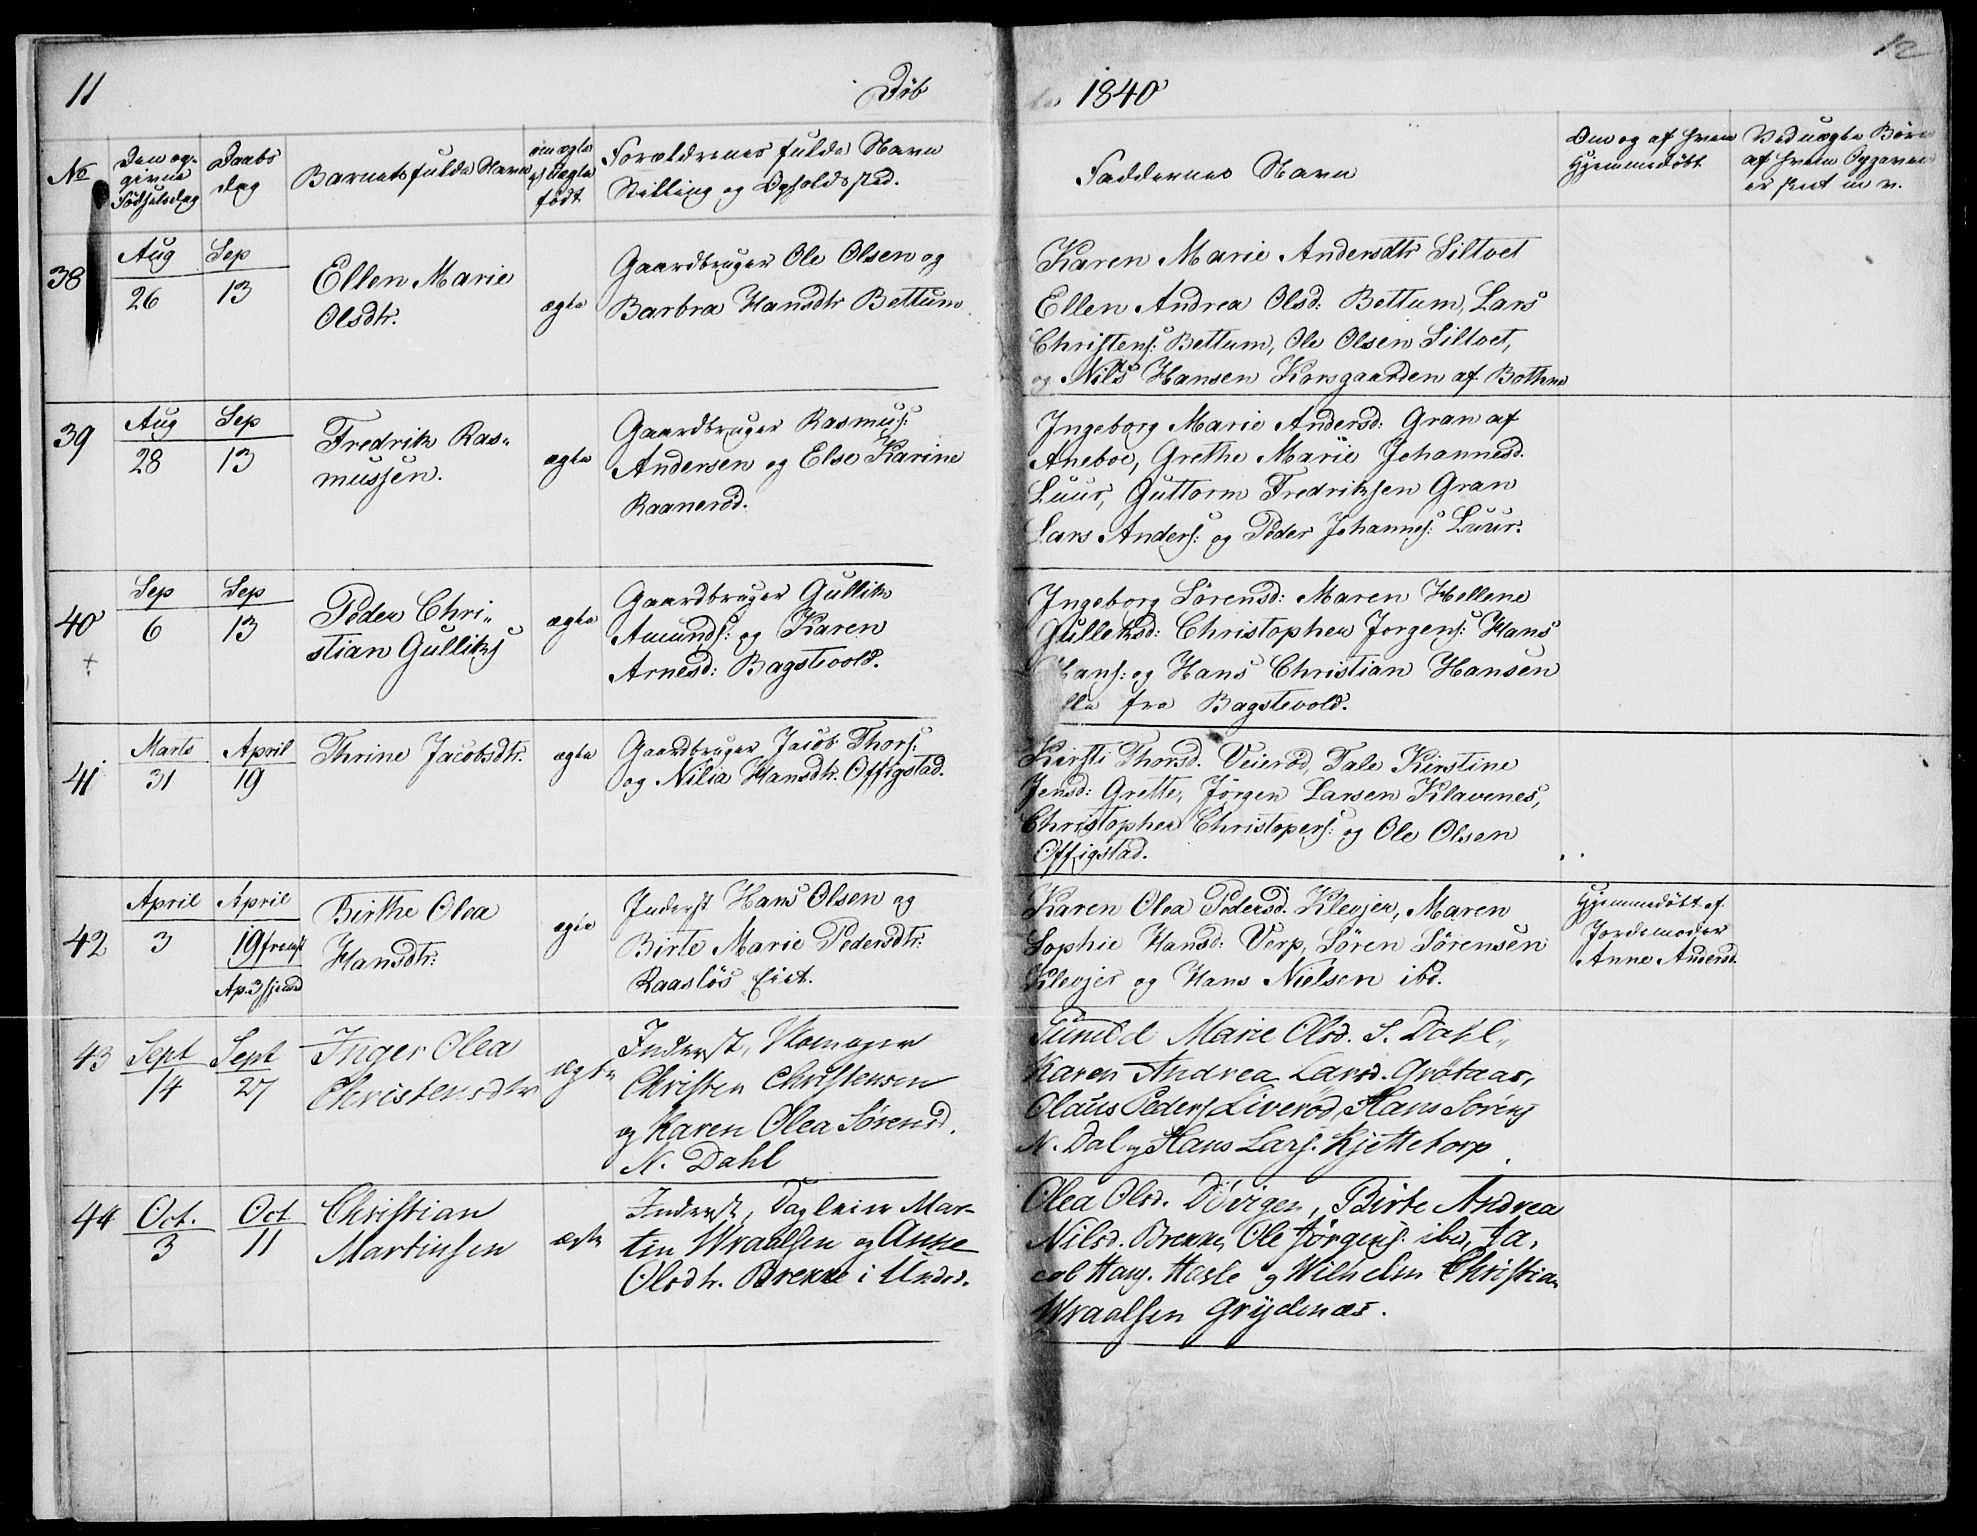 11
Døb
1840
12
No
Den op-
givne
Fødselsdag
Daabs
dag
Barnets fulde Navn
om ægte
el uægte
født
Forældrenes fulde Navn
Stilling og Opholdssted.
Faddernes Navn
Om og af hvem
Hjemmedøbt
Ved uægte Børn
af hvem Opgaven
er skeet m v.
38
Aug
26
Sep
13
Ellen Marie
Olsdtr.
ægte
Gaardbruger Ole Olsen og
Barbra Hansdtr Bettum
Karen Marie Andersdtr Siltvet
Ellen Andrea Olsd: Bettum, Lars
Christens: Bettum, Ole Olsen Siltvet,
og Nils Hansen Korsgaarden af Bothne
39
Aug
28
Sep
13
Fredrik Ras„
mussen.
ægte
Gaardbruger Rasmus:
Andersen og Else Karine
Raanerød.
Ingeborg Marie Andersd: Gran af
Aneboe, Grethe Marie Johannesd.
Luur, Guttorm Fredriksen Gran
Lars Anders: og Peder Johannes: Luur.
40
+
Sep
6
Sep
13
Peder Chri„
stian Gulliks
ægte
Gaardbruger Gullik
Amunds: og Karen
Arnesd: Bagstevold.
Ingeborg Sørensd: Maren Hellene
Gulleksd: Christopher Jorgens: Hans
Hans: og Hans Christian Hansen
fra Bagstevold.
41
Marts
31
April
19
Thrine Jacobsdtr.
ægte
Gaardbruger Jacob Thors:
og Nilia Hansdtr. Offigstad.
Kirsti Thorsd. Veierød, Tale Kirstine
Jensd: Grette, Jörgen Larsen Klavenes,
Christopher Christopers: og Ole Olsen
Offigstad.
42
April
3
April
19 fremst
Ap. 3 hjemd
Birthe Olea
Hansdtr:
ægte
Inderst Hans Olsen og
Birte Marie Pedersdtr:
Raasløs Eiet.
Karen Olea Pedersd. Klevjer, Maren
Sophie Hansd: Verp, Sören Sörensen
Klevjer og Hans Nielsen ibd.
Hjemmedøbt af
Jordemoder
Anne Andersd.
43
Sept
14
Sept
27
Inger Olea
Christensdtr
ægte
Inderst, Skomager
Christen Christensen
og Karen Olea Sørensd.
N. Dahl
Marie Olsd. S. Dahl,
Karen Andrea Larsd. Grötaas,
Olaus Peders Liveröd, Hans Sørens
N. Dal og Hans Lars. Kjettetorp
44
Oct.
3
Oct
11
Christian
Martinsen
ægte
Inderst, Dagleier Mar-
tin Wraalsen og Anne
Olsdtr. Brekke i
Olea Olsd. Dövigen, Birte Andrea
Nilsd. Brekke, Ole Jörgens. ibd, Ja,
cob Hans. Hasle og Wilhelm Christian
Wraalsen Grydenæs.